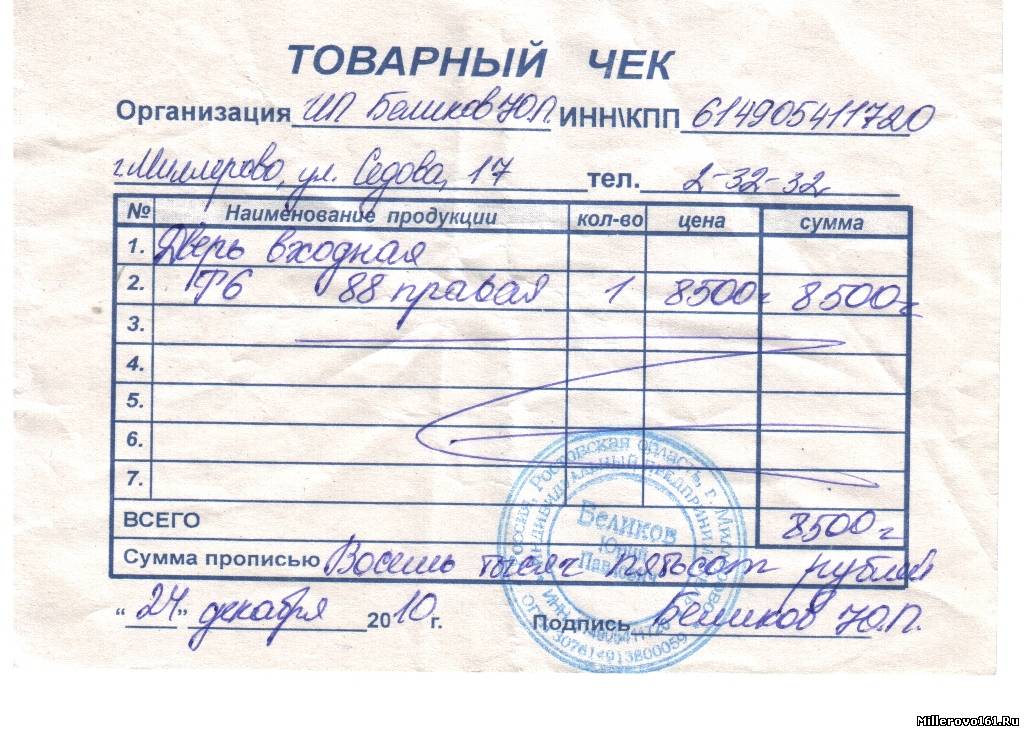 ТОВАРНЫЙ ЧЕК
Организация ИП Беликов Ю.П. ИНН\КПП 614905411720
г. Миллерово, ул. Седова, 17 тел. 2-32-32
№ Наименование продукции кол-во цена сумма
1. Дверь входная
2. Т6 88 правая 1 8500 8500
3.
4.
5.
6.
7.
ВСЕГО 8500
Сумма прописью Восемь тысяч пятьсот рублей
"24" декабря 2010г. Подпись Беликов Ю.П.
Россия, Ростовская область, г. Миллерово
ИНДИВИДУАЛЬНЫЙ ПРЕДПРИНИМАТЕЛЬ
Беликов
Юрий
Павлович
ИНН 614905411720
307614913800059
Millerovo161.Ru